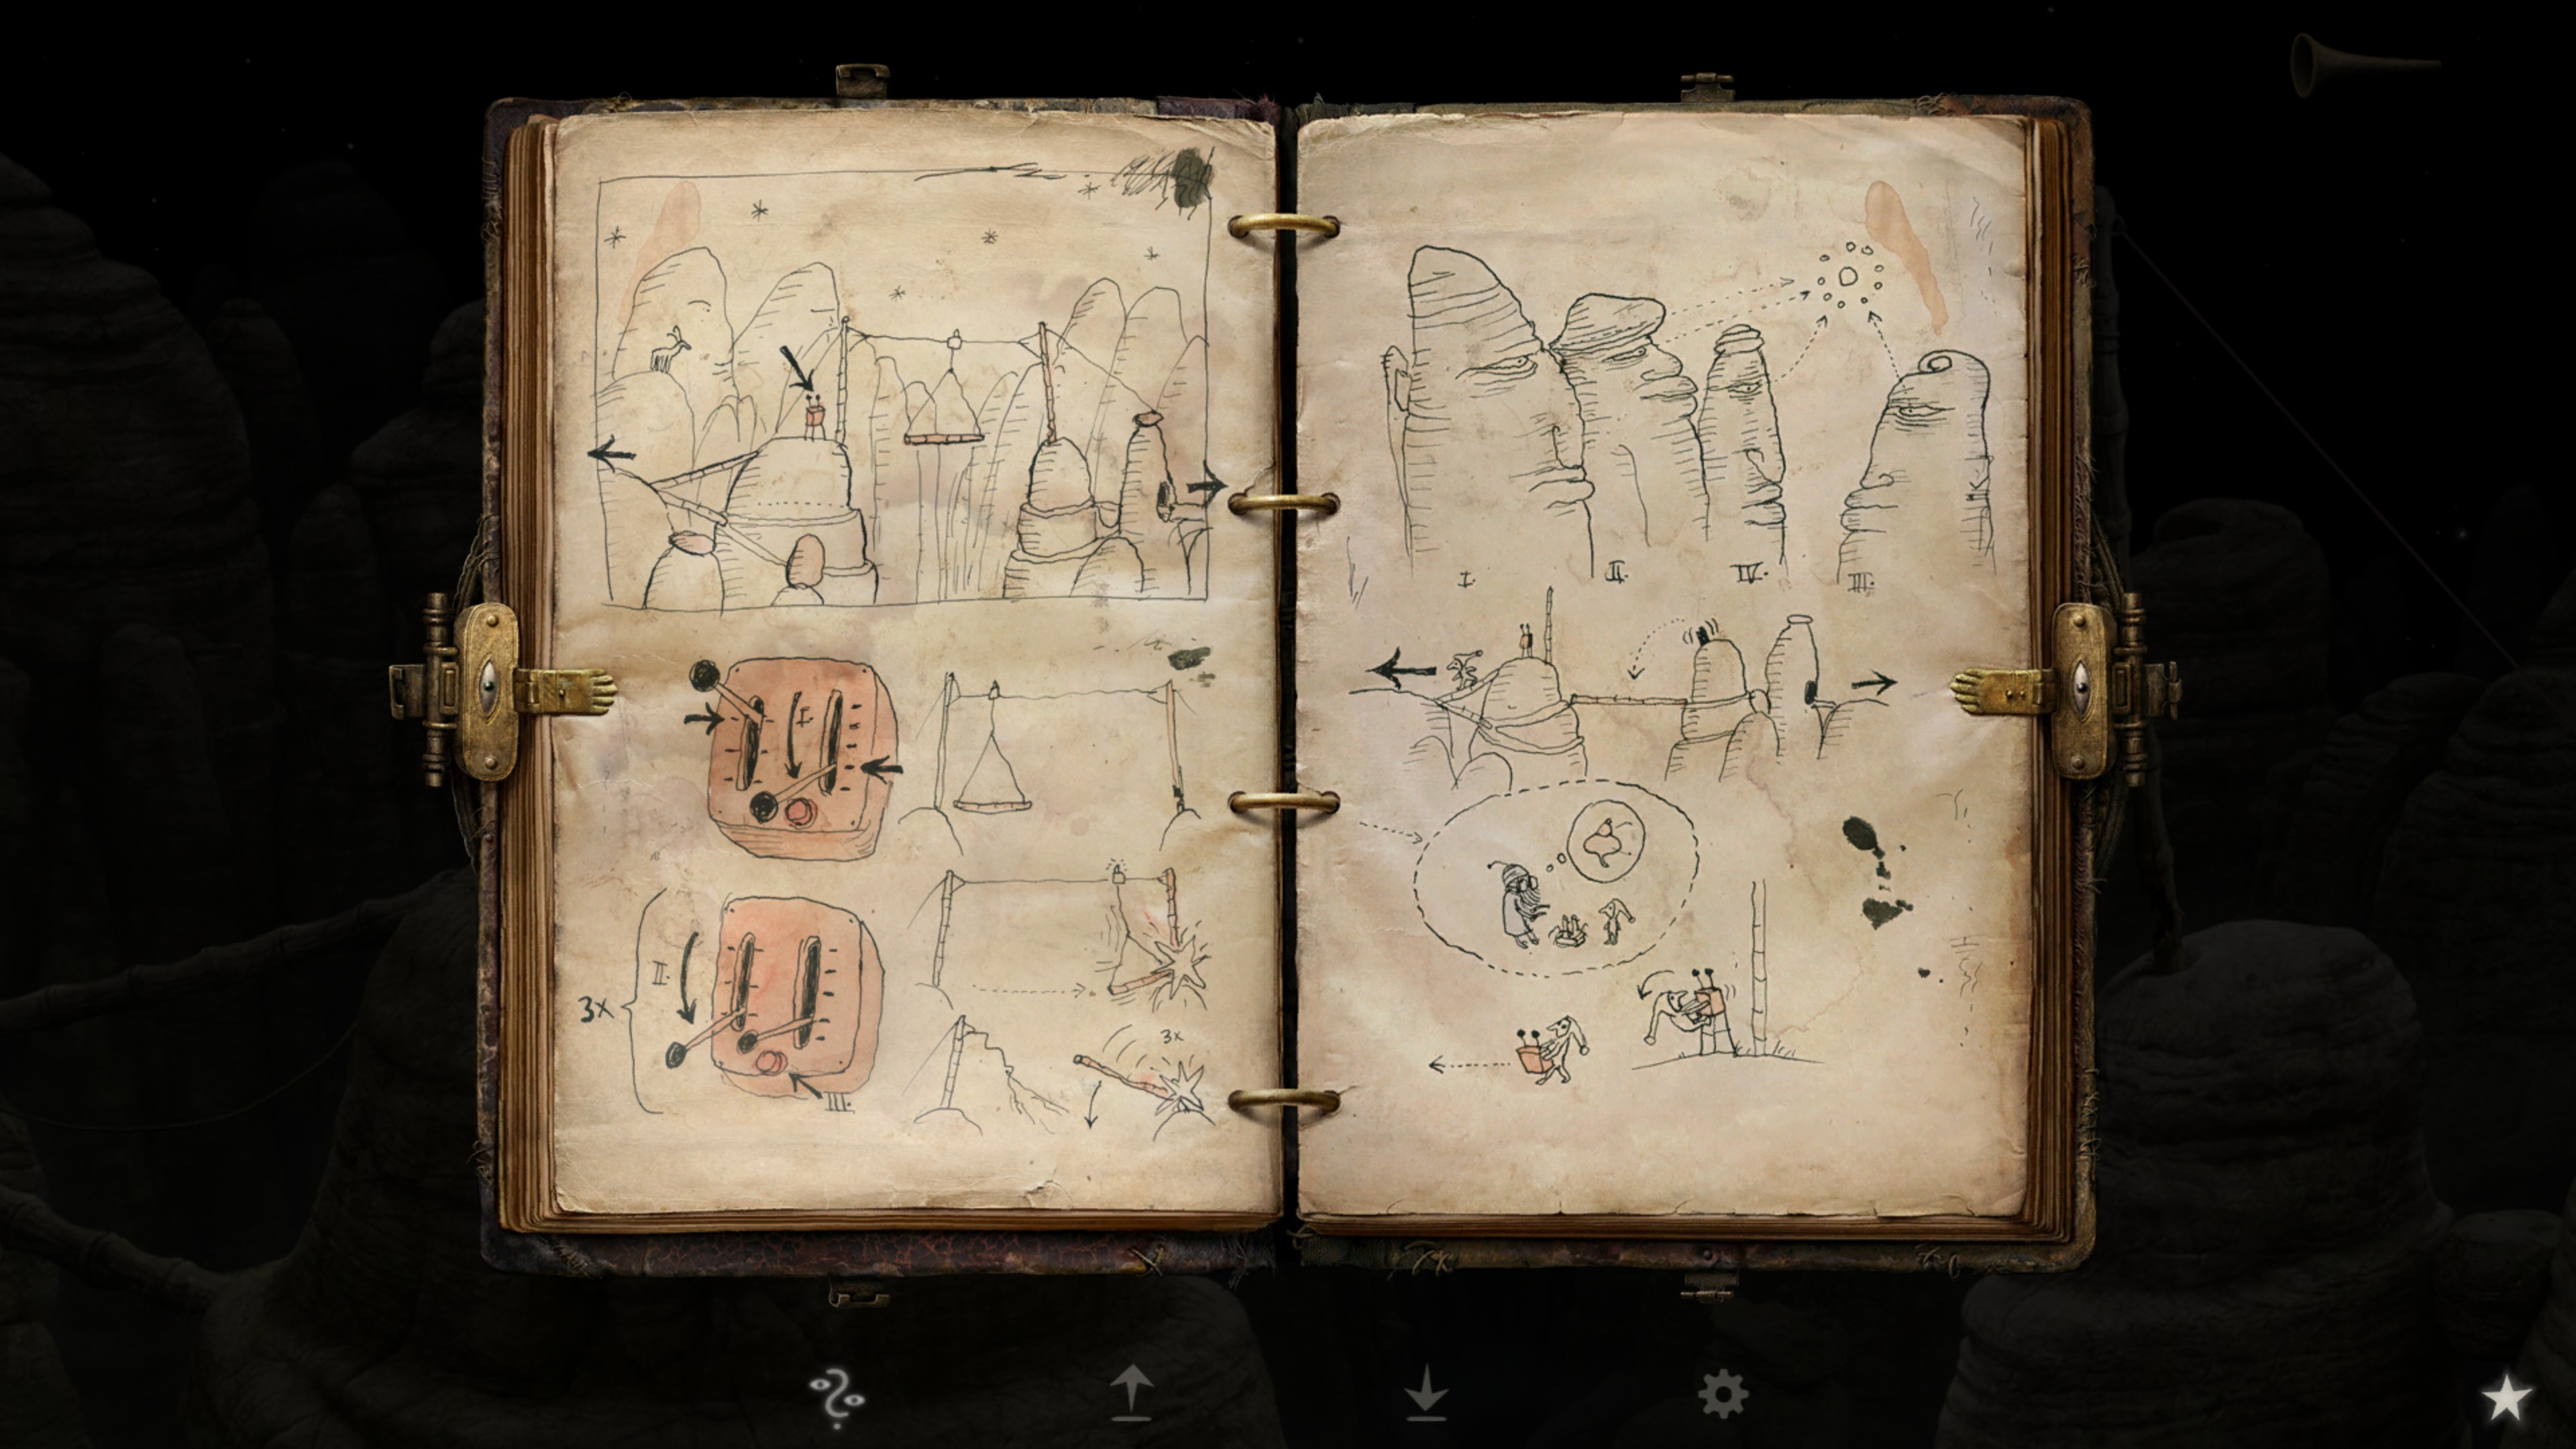 I.
3x
II.
III.
3x
I.
II.
IV.
III.